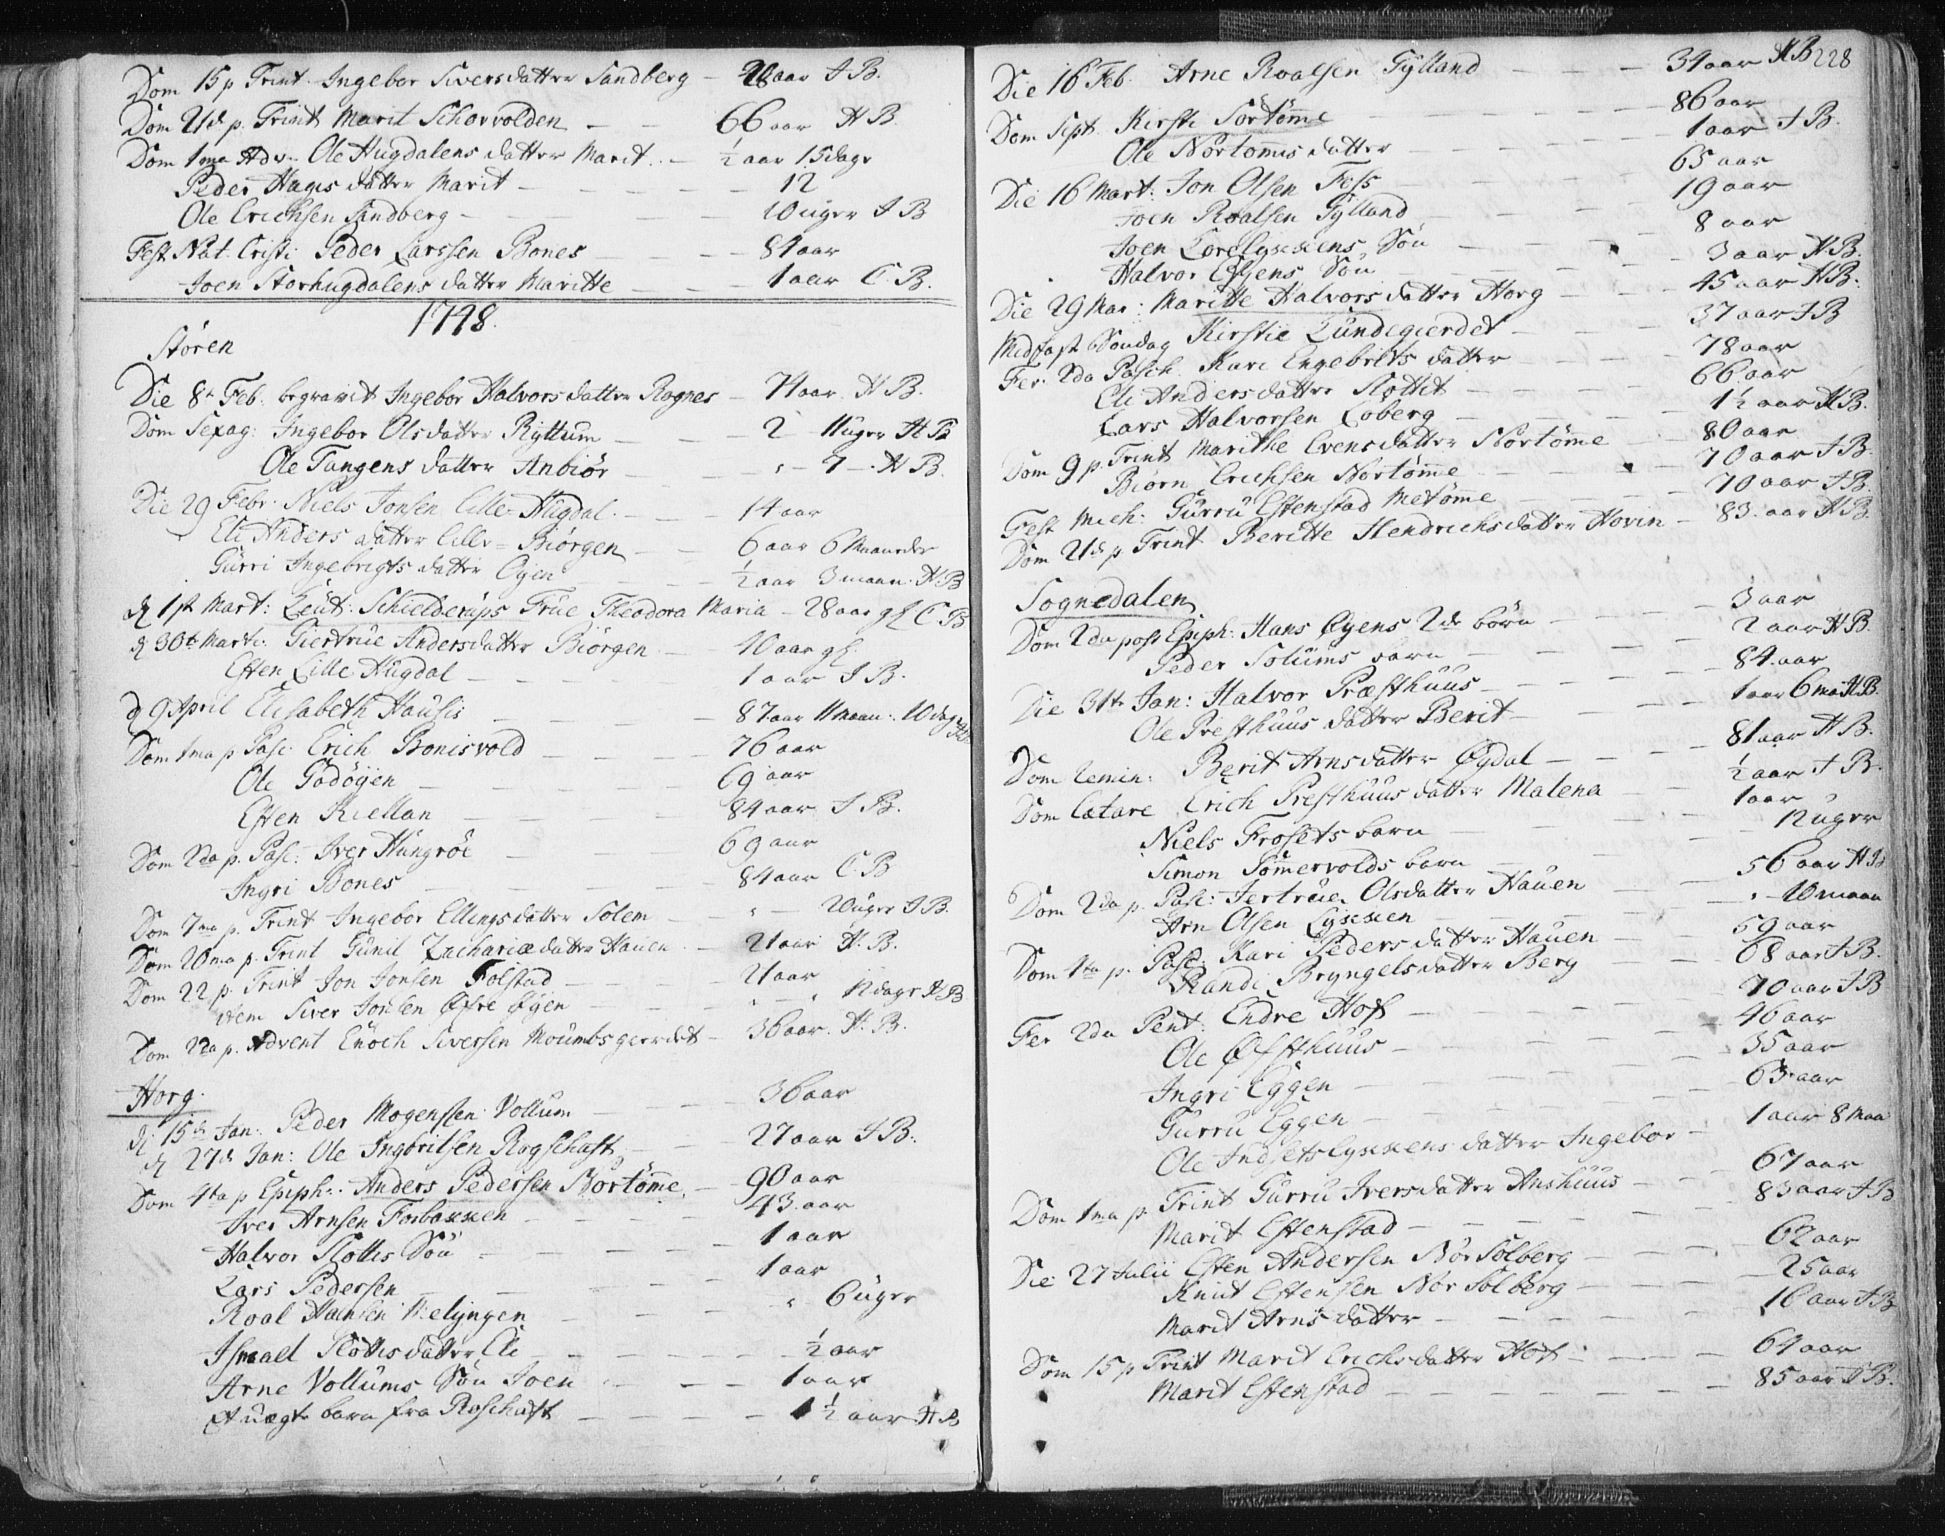 Dom 15 p Trint. Ingebor Siversdatter Sandberg - 20 aar I B.
Dom 21de p. Trinit Marit Schorvolden - - 66 aar H B.
Dom 1ma Adv. Ole Hugdalens datter Marit - ½ aar 15 dage
Peder Hages datter Marit - - - 12
Ole Erichsen Sandberg - - - 10 uger I B
Fest Nat. Cristi Peder Larssen Bones - - - 81 aar
Joen Storhugdalens datter Maritte - - - 1 aar C. B.
1748.
Stören
Die 8de Feb. begravet Ingebor Halvorsdatter Rognes - 74 aar H B.
Dom Sexag: Ingebor Olsdatter Ryttum - - 2 - 11 uger H B
Ole Tangens datter Anbiör - - " - 7 - H B.
Die 29 Febr. Niels Jonsen Lille-Hugdal - - 14 aar
Eli Anders datter Lille-Biörgen - - 6 aar 6 Maaneder
Gurri Ingebrigts datter Öyen - - ½ aar 3 maan. H B
d 1st Mart: Leut: Schielderups Frue Theodora Maria - 28 aar C B
d 30te Marti: Giertrue Andersdatter Biörgen - 40 aar
Esten Lille Hugdal - - - 1 aar I B.
d 9 April Elisabeth Hausis - - - 87 aar 11 maan: 10 dage
Dom 1ma p Pasc: Erich Bonisvold - - 76 aar
Ole Godöyen - - - 69 aar
Esten Kiellan - - - 84 aar I B.
Dom 2da p. Pasc: Iver Hungröe - - 69 aar
Ingri Bones - - - 84 aar C. B
Dom 7ma p. Trint Ingebor Ellingsdatter Solem - " - 10 uger I B.
Dom 20ma p. Trint Gunil Zachariædatter Hauen - 21 aar H. B.
Dom 22 p. Trint Jon Jonsen Folstad - - 21 aar
item Siver Jonsen Øfre Øyen - " - " 12 dage H B
Dom 22a p. Advent Enoch Siversen Moumbsgierdet - 36 aar. H. B.
Horg.
d. 15de Jan: Peder Mogensen Vollum - - 36 aar
d. 27de Jan: Ole Ingbrilsen Rogschaft - - 27 aar I B.
Dom 4ta p Epiph: Anders Pedersen Bortömme - 90 aar
Iver Arnsen Forbaxxen - - - 43 aar
Halvor Slottes Sön - - - 1 aar
Lars Pedersen - - - 1 aar
Roal Hansen - - - " 6 uger
Ismael Slottes datter Eli - - - ½ aar
Arne Vollums Sön Joen - - - 1 aar
Et uægte barn fra Roschaft - - - 1½ aar H B
228
Die 16 Feb. Arne Roalsen Gylland - - - 34 aar H B
Dom Sept. Kirsti Sörtömme - - - 86 aar
Ole Nortömmes datter - - - 1 aar I B.
Die 16 Mart: Jon Olsen Fess - - - 65 aar
Joen Roalsen Gylland - - - 19 aar
Joen Lorelyxxens Sön - - - 8 aar
Halvor Øyens Sön - - - 3 aar H B.
Die 29 Mar: Maritte Halvorsdatter Horg - - 45 aar H B.
Midfaste Söndag Kirstie Lundegierdet - - - 37 aar I B
Fer. 2da Pasch. Kari Engebrets datter - - - 78 aar
Eli Andersdatter Slottet - - - 66 aar
Lars Halvorsen Loberg - - - 1½ aar H B.
Dom 9 p. Trint Marithe Evensdatter Nortömme - 80 aar
Biörn Erichsen Nortömme - - - 70 aar I B.
Fest Mich: Gurru Estenstad Metömme - - - 70 aar I B.
Dom 21de p Trint. Beritte Hendrichsdatter Hovin - 83 aar H B.
Sognedalen
Dom 2da post Epiph. Hans Øyens 2de börn - - - 3 aar
Peder Solums barn - - - 2 aar H B.
Die 31te Jan: Halvor Præsthuus - - - 84 aar
Ole Presthuus datter Berit - - - 1 aar 6 ma H B.
Dom Remin: Berit Arnsdatter Øydal - - 81 aar H B.
Dom Lætare Erich Presthuus datter Malena - ½ aar I B.
Niels Frosets barn - - - 1 aar
Simon Sömmervolds barn - - - 12 uger
Dom 2da p. Pasc: Jertrue Olsdatter Hauen - - 56 aar H B
Arn Olsen Lyxxen - - - " 10 maan
Dom 4ta p. Pasc: Kari Peders datter Hauen - - 59 aar
Randi Bryngelsdatter Berg - - 68 aar I B.
Fer 2da Pent: Endre Hof - - - 70 aar I B
Ole Øfsthuus - - - 46 aar
Ingri Eggen - - - 35 aar
Gurru Eggen - - - 63 aar
Ole Indsetslyxxens datter Ingebor - 1 aar 8 Maa
Dom 1ma p. Trint Gurru Iversdatter Anshuus - - 67 aar
Marit Estenstad - - - 83 aar I B
Die 27 Julii Esten Andersen Nör Solberg - - - 62 aar
Knut Estensen Nör Solberg - - - 25 aar
Marit Arnsdatter - - - 16 aar I B
Dom 15 p Trint Marit Erichsdatter Hof - - - 64 aar
Marit Estenstad - - - 85 aar I B.